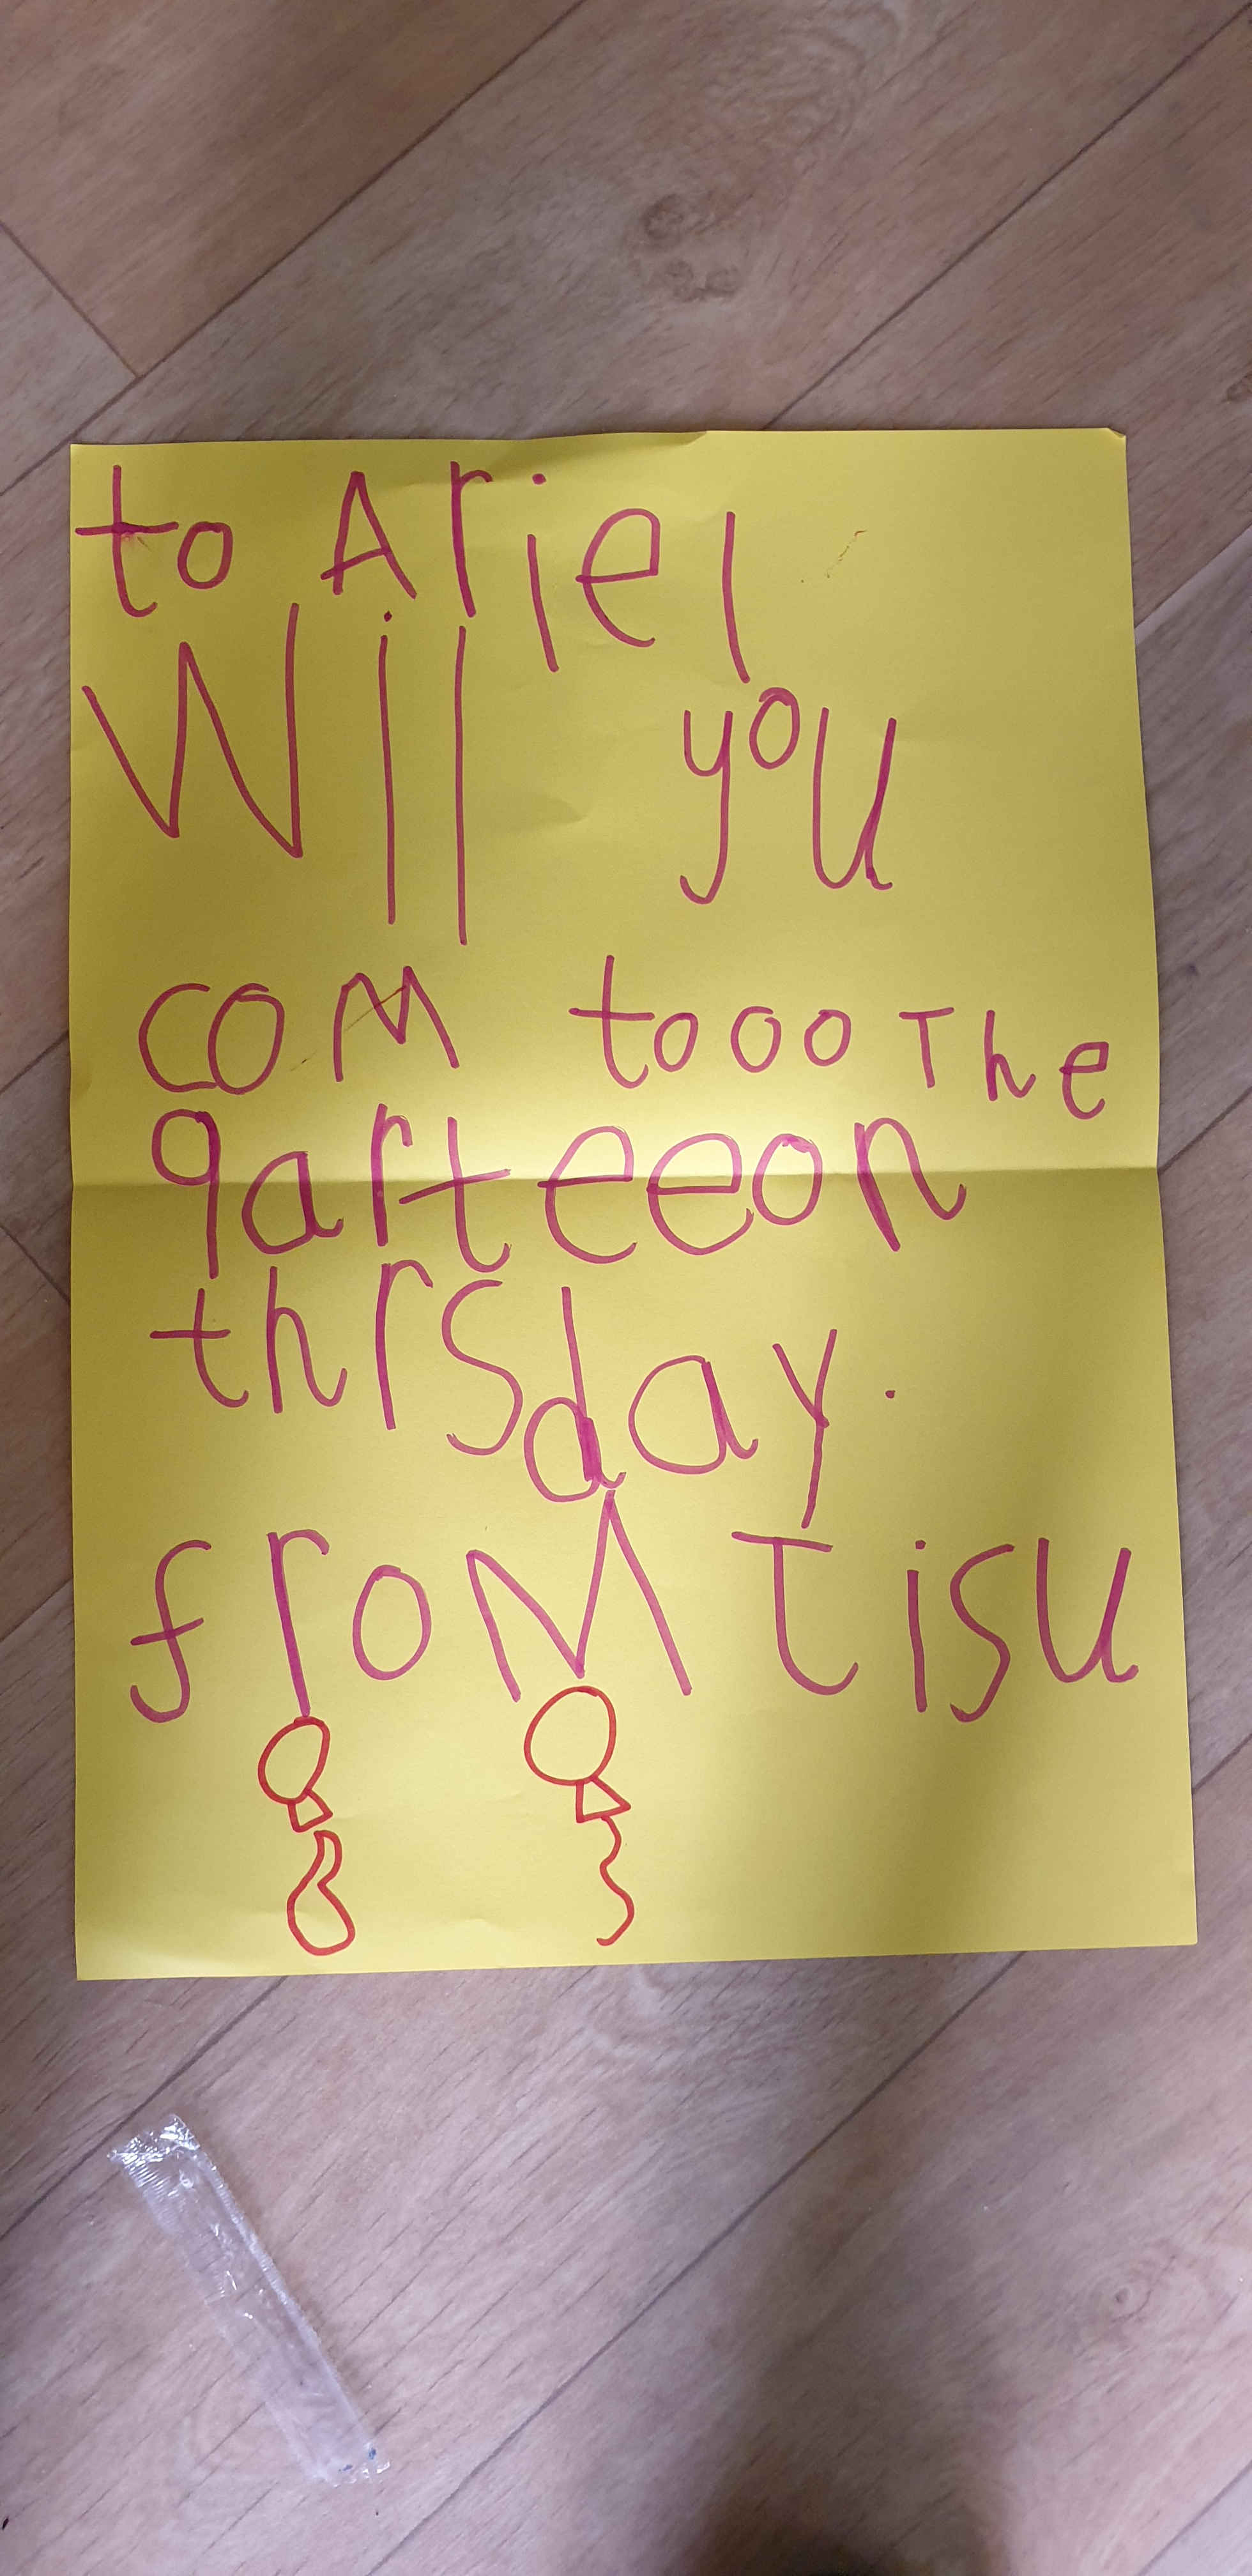 to Ariel
Wil you
com tooo The
qarteeon
thrsday.
froM Tisu